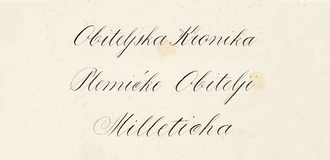 Obiteljska Kronika
Plemićke Obitelji
Milleticha